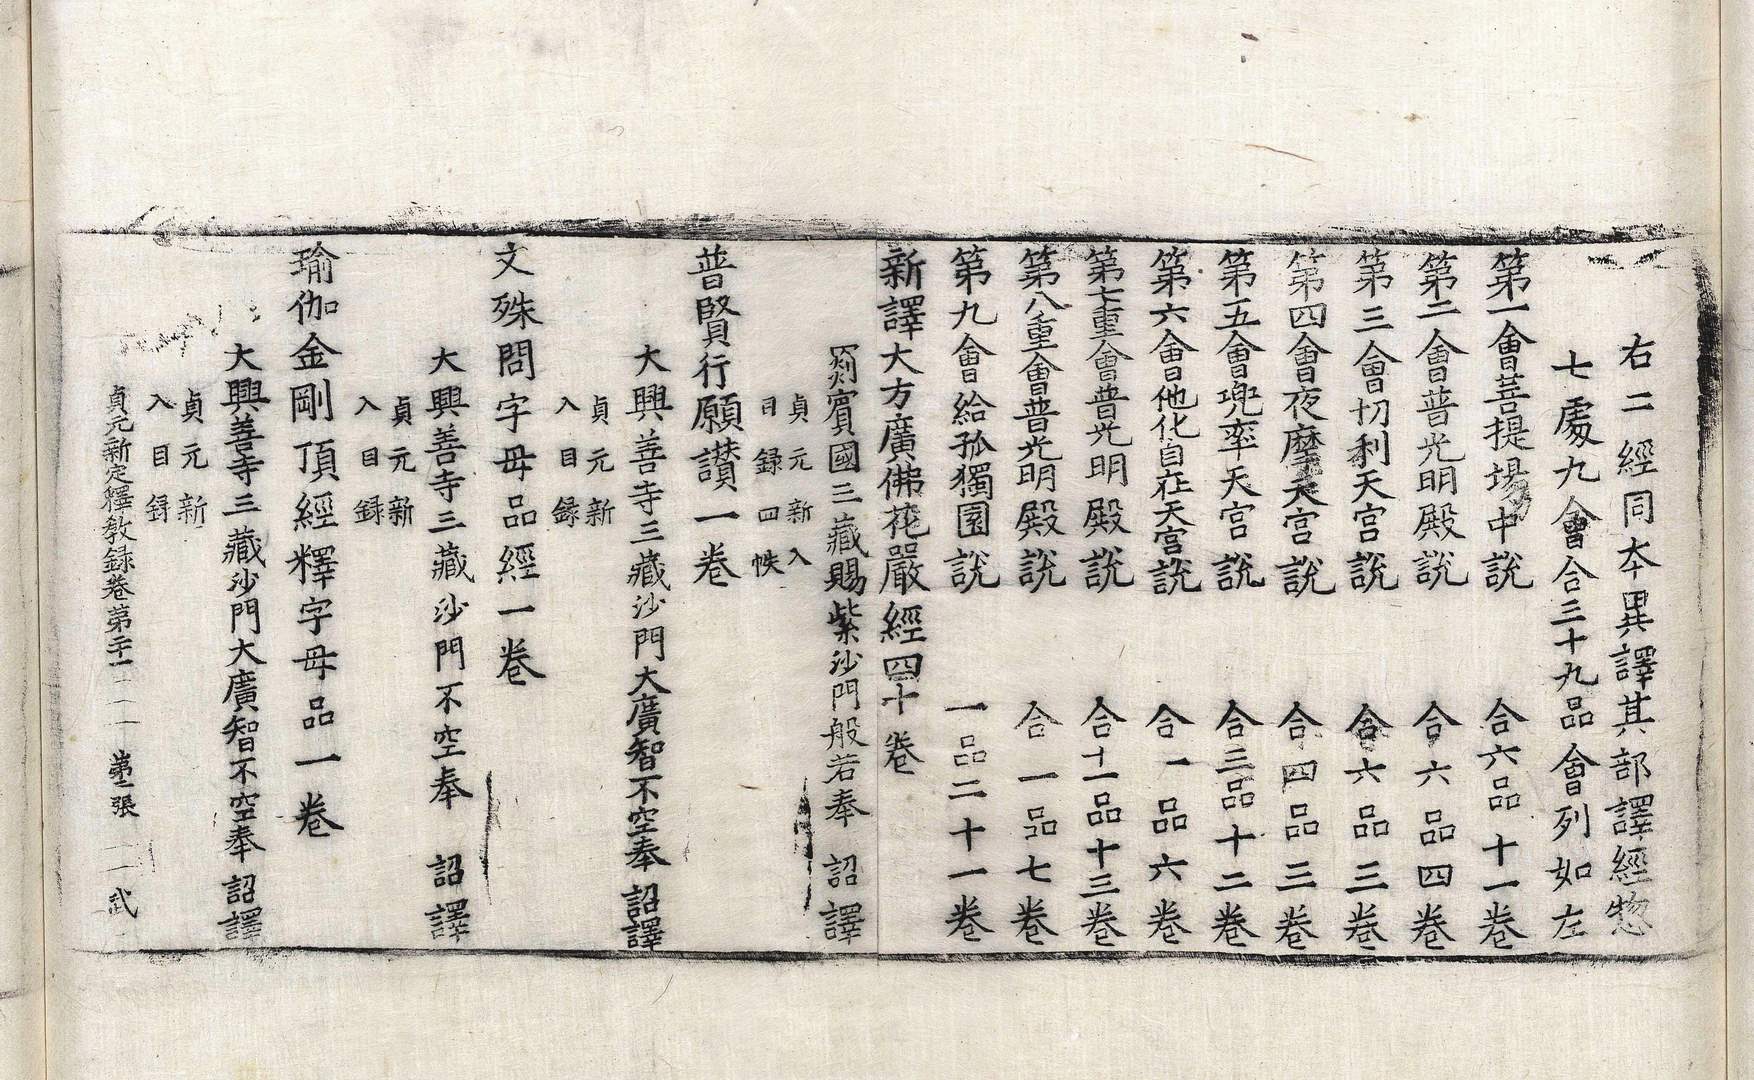 右二經同本異譯其部譯經惣
七處九會合三十九品會列如左
第一會菩提場中說 合六品十一卷
第二會普光明殿說 合六品四卷
第三會忉利天宮說 合六品三卷
第四會夜摩天宮說 合四品三卷
第五會兜率天宮說 合三品十二卷
第六會他化自在天宮說 合一品六卷
第七重會普光明殿說 合十一品十三卷
第八重會普光明殿說 合一品七卷
第九會給孤獨園說 一品二十一卷
新譯大方廣佛花嚴經四十卷
罽賓國三藏賜紫沙門般若奉 詔譯
貞元新入
目錄四帙
普賢行願讃一卷
大興善寺三藏沙門大廣智不空奉詔譯
貞元新
入目錄
文殊問字母品經一卷
大興善寺三藏沙門不空奉 詔譯
貞元新
入目錄
瑜伽金剛頂經釋字母品一卷
大興善寺三藏沙門大廣智不空奉詔譯
貞元新
入目錄
貞元新定釋教錄卷第二十一 第二張 武